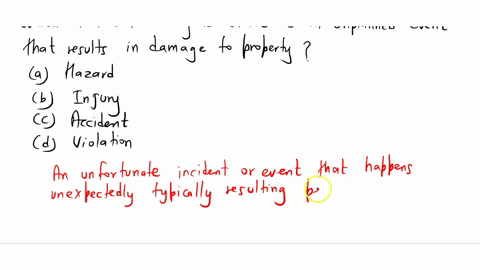 that results in damage to property ?
(a) Hazard
(b) Injury
(c) Accident
(d) Violation
An unfortunate incident or event that happens
unexpectedly typically resulting